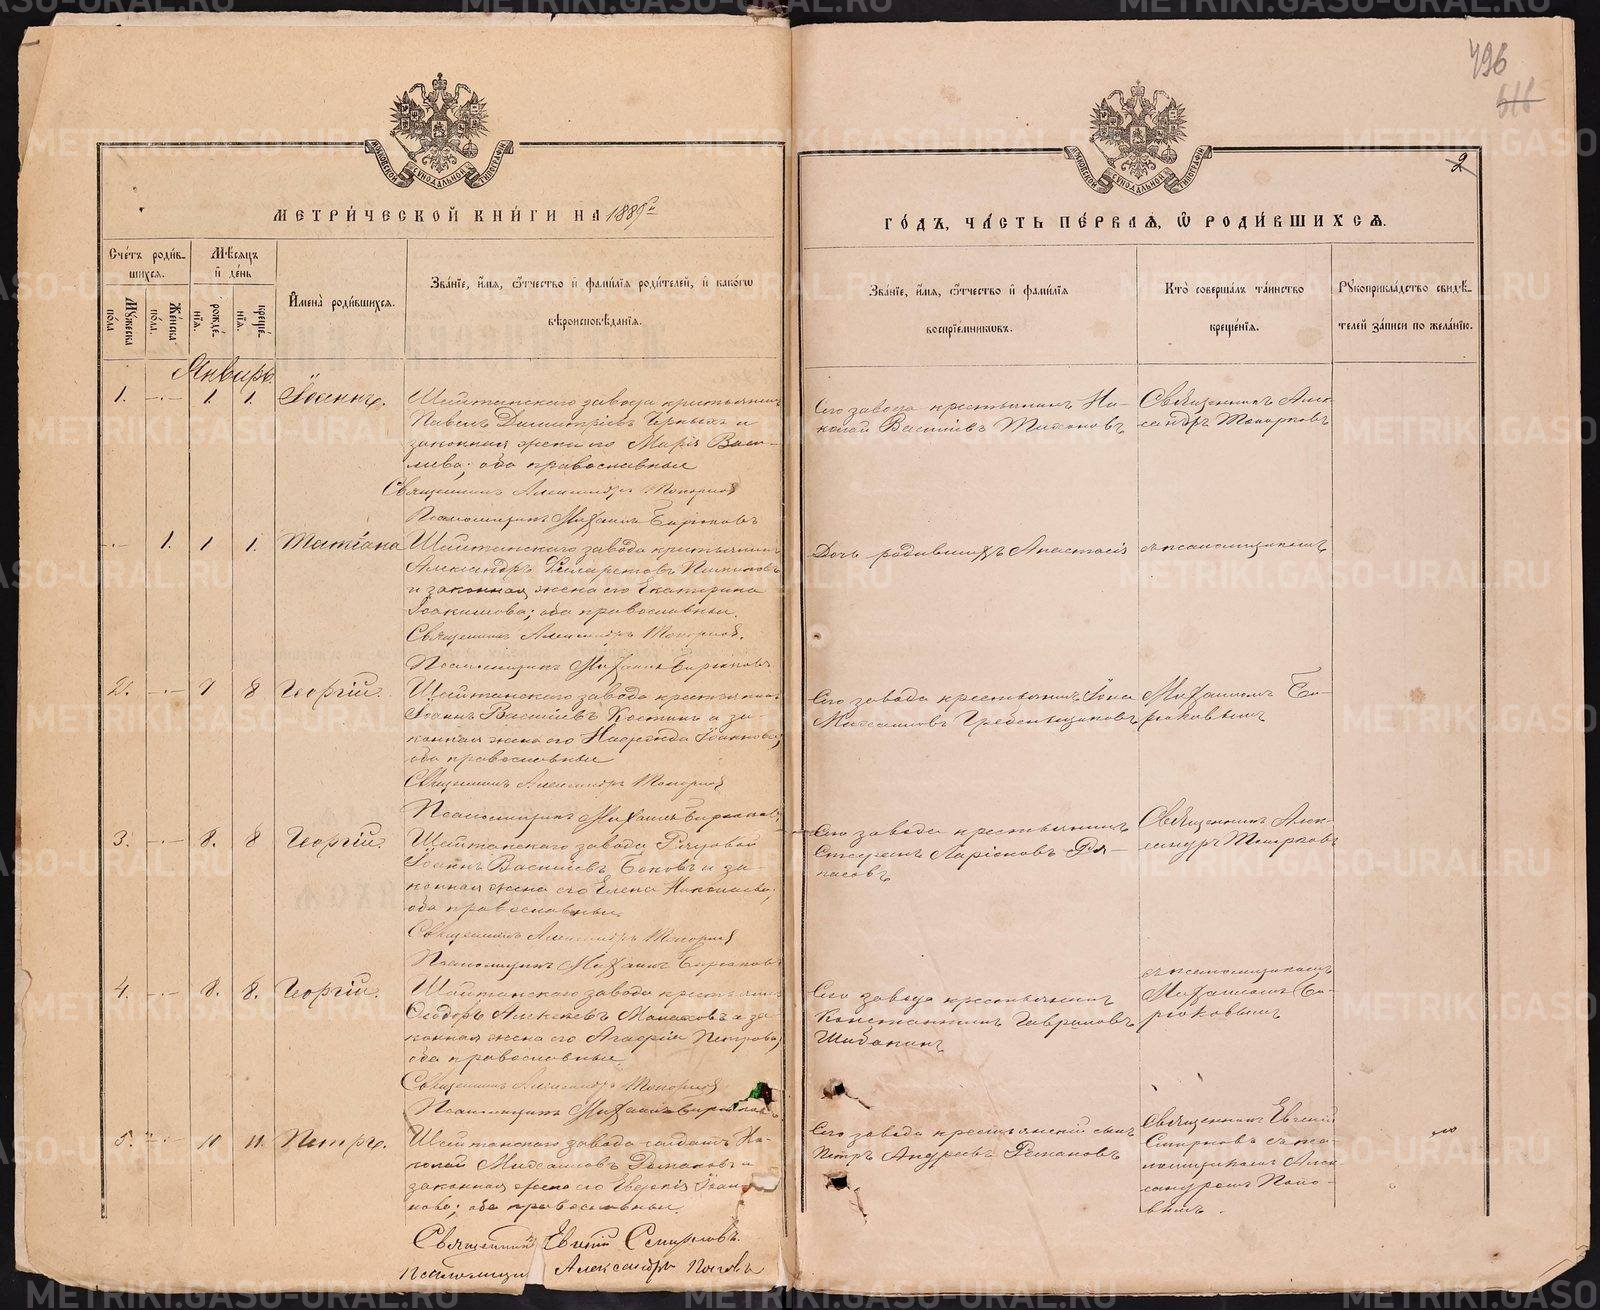 496
516
2
МОСКОВСКОЙ СУНОДАЛЬНОЙ ТИПОГРАФІИ
МОСКОВСКОЙ СУНОДАЛЬНОЙ ТИПОГРАФІИ
МЕТРИ́ЧЕСКОЙ КНИ́ГИ НА 1889 г
ГО́ДЪ, ЧА́СТЬ ПЕ́РВАЯ, Ѡ РОДИ́ВШИХСЯ.
Сче́тъ роди́вшихся.
Мꙋжеска по́ла.
Же́нска по́ла.
Мѣ́сяцъ и де́нь
рожде́нїя.
креще́нїя.
И҆мена̀ роди́вшихся.
Зва́нїе, и҆́мя, ѻ҆́тчество и҆ фами́лїя роди́телей, и҆ како́гѡ
вѣроисповѣ́данїя.
Зва́нїе, и҆́мя, ѻ҆́тчество и҆ фами́лїя
воспрїе́мникѡвъ.
Кто̀ соверша́лъ та́инство
креще́нїя.
Рꙋкоприкла́дство свидѣ́-
телей за́писи по жела́нїю.
Январь.
1. 1. 1. Іоаннъ.
Шайтанскаго завода крестьянинъ
Павелъ Димитріевъ Черныхъ и
законная жена его Марія Васи-
льева; оба православные
Священникъ Александръ Топорковъ
Псаломщикъ Михаилъ Бирюковъ
Сего завода крестьянинъ Ни-
колай Васильевъ Тихоновъ
Священникъ Алек-
сандръ Топорковъ
1. 1 1. Татіана
Шайтанскаго завода крестьянинъ
Александръ Филаретовъ
и законная жена его Екатерина
Іоакимова; оба православные.
Священникъ Александръ Топорковъ.
Псаломщикъ Михаилъ Бирюковъ
Дочь родившихъ Анастасія
съ псаломщикомъ
2. 7 8 Георгій.
Шайтанскаго завода крестьянинъ
Іоаннъ Васильевъ Костинъ и за-
конная жена его Надежда Іоаннова;
оба православные
Священникъ Александръ Топорковъ
Псаломщикъ Михаилъ Бирюковъ
Сего завода крестьянинъ Іона
Михаиловъ Гребенщиковъ
Михаиломъ Би-
рюковымъ
3. 8. 8 Георгій.
Шайтанскаго завода Рядовой
Іоаннъ Васильевъ Боковъ и за-
конная жена его Елена Николаева;
оба православные.
Священникъ Александръ Топорковъ
Псаломщикъ Михаилъ Бирюковъ
Сего завода крестьянинъ
Стефанъ Ларіоновъ Ря-
пасовъ
Священникъ Алек-
сандръ Топорковъ
4. 8. 8. Георгій.
Шайтанскаго завода крестьянинъ
Ѳеодоръ Алексѣевъ и за-
конная жена его Агафія Петрова;
оба православные.
Священникъ Александръ Топорковъ
Псаломщикъ Михаилъ Бирюковъ
Сего завода крестьянинъ
Константинъ Гавриловъ
съ псаломщикомъ
Михаиломъ Би-
рюковымъ
5. 11 11. Петръ.
Шайтанскаго завода солдатъ Ни-
колай Михаиловъ Романовъ и
законная жена его Евгенія Іоан-
нова; оба православные.
Священникъ Евгеній Смирновъ.
Псаломщикъ Александръ Поповъ
Сего завода крестьянскій сынъ
Петръ Андреевъ Романовъ
Священникъ Евгеній
Смирновъ съ пса-
ломщикомъ Алек-
сандромъ Попо-
вымъ.
METRIKI.GASO-URAL.RU